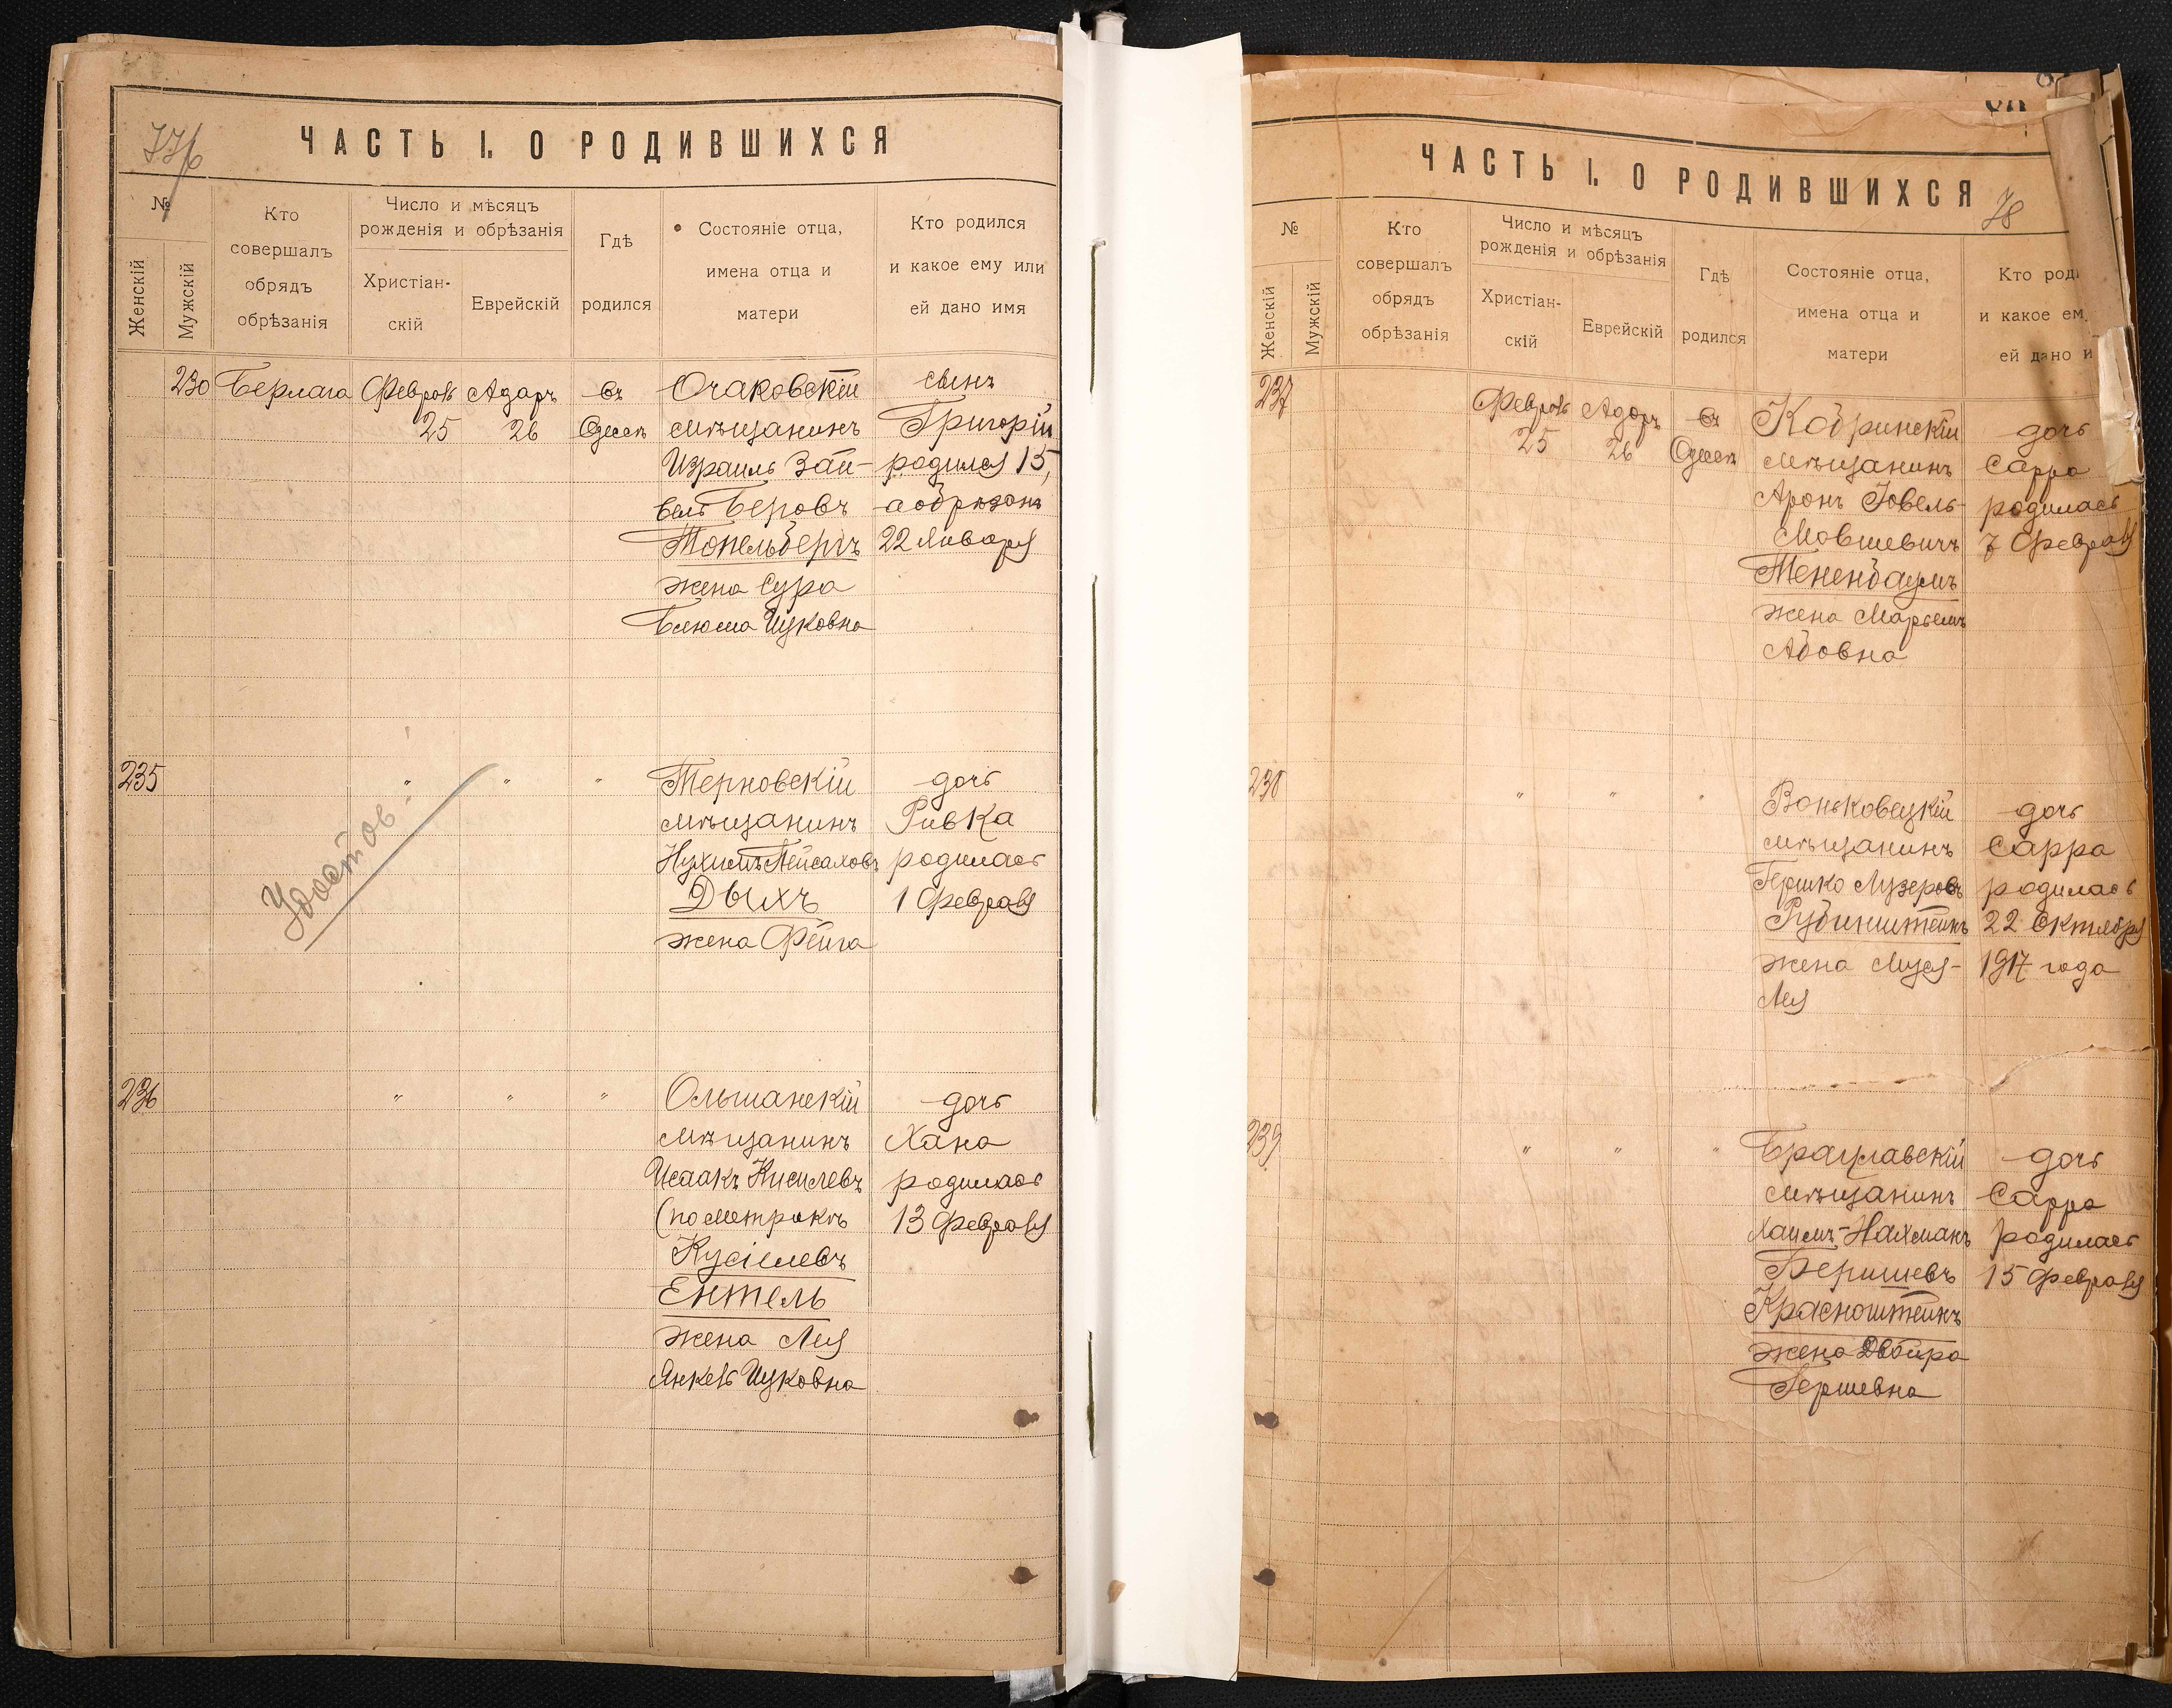 77б
ЧАСТЬ I. О РОДИВШИХСЯ
№
Женскій
Мужскій
Кто
совершалъ
обрядъ
обрѣзанія
Число и мѣсяцъ
рожденія и обрѣзанія
Христіан-
скій
Еврейскій
Гдѣ
родился
Состояніе отца,
имена отца и
матери
Кто родился
и какое ему или
ей дано имя
230 Берлага Февраль Адаръ въ Очаковскій сынъ
25 26 Одессѣ мѣщанинъ Григорій
Израиль Зай- родился 15,
вель Беровъ а обрѣзанъ
Топельбергъ 22 Января
жена Сура
Блюма Ицковна
235 " " " Терновскій дочь
мѣщанинъ Ривка
Нухимъ Пейсаховъ родилась
Дыхъ 1 Февраля
жена Фейга
Удостов.
236 " " " Ольшанскій дочь
мѣщанинъ Хана
Исаакъ Кисилевъ родилась
(по метрикѣ 13 Февраля
Кусіелевъ
Ентель
жена Лея
Янкель Ицковна
ЧАСТЬ I. О РОДИВШИХСЯ
78
№
Женскій
Мужскій
Кто
совершалъ
обрядъ
обрѣзанія
Число и мѣсяцъ
рожденія и обрѣзанія
Христіан-
скій
Еврейскій
Гдѣ
родился
Состояніе отца,
имена отца и
матери
Кто роди
и какое ем
ей дано и
237 Февраль Адаръ въ Кобринскій дочь
25 26 Одессѣ мѣщанинъ Сарра
Аронъ Іовель- родилась
Мовшевичъ 7 Февраля
Тененбаумъ
жена Марьемъ
Абовна
238 " " " Воньковецкій дочь
мѣщанинъ Сарра
Гершко Лузеровъ родилась
Рубинштейнъ 22 Октября
жена Муся- 1917 года
Лея
239 " " " Брацлавскій дочь
мѣщанинъ Сарра
Хаимъ-Нахманъ родилась
Беришевъ 15 Февраля
Красноштейнъ
жена Двойра
Гершевна